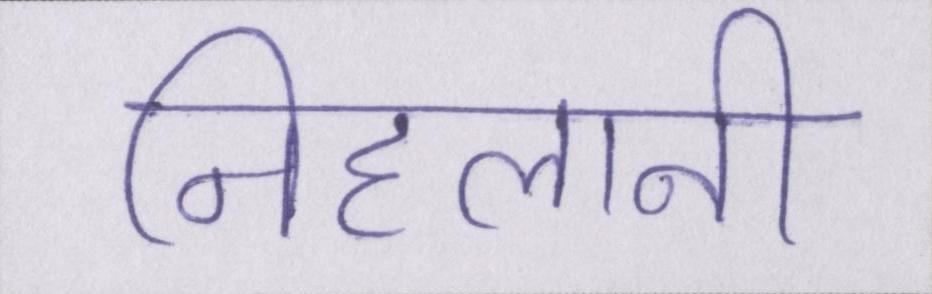 निहलानी